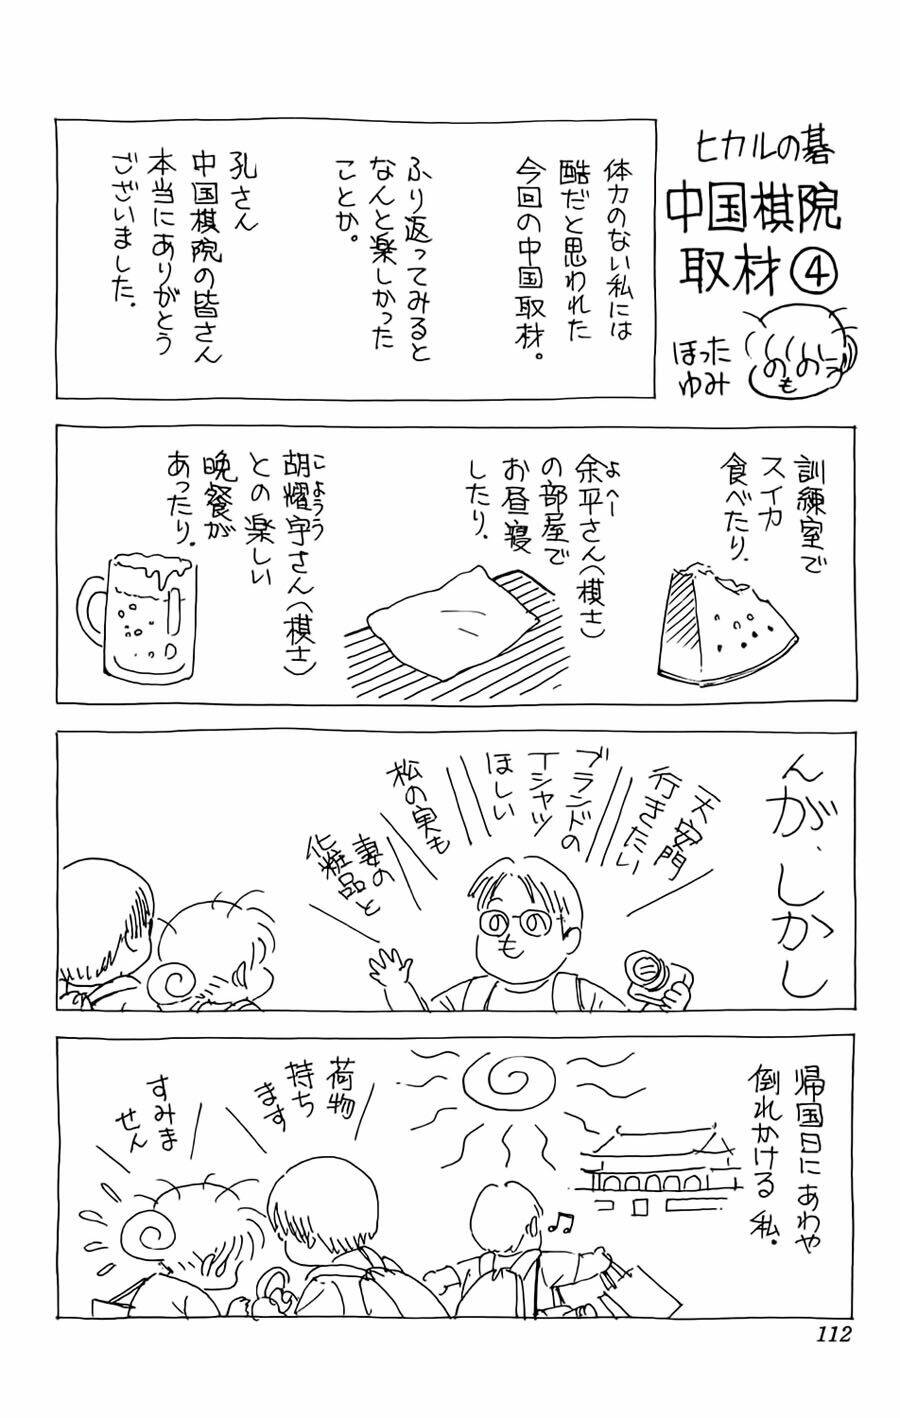 ヒカルの碁
中国棋院
取材④
ほった
ゆみ
体力のない私には
酷だと思われた
今回の中国取材。
ふり返ってみると
なんと楽しかった
ことか。
孔さん
中国棋院の皆さん
本当にありがとう
ございました。
訓練室で
スイカ
食べたり。
余平さん(棋士)
よへー
の部屋で
お昼寝
したり。
胡耀宇さん(棋士)
こようう
との楽しい
晩餐が
あったり。
んが、しかし
天安門
行きたい
ブランドの
Tシャツ
ほしい
松の実も
妻の
化粧品と
のものも
帰国日にあわや
倒れかける私。
荷物
持ち
ます
すみま
せん
112